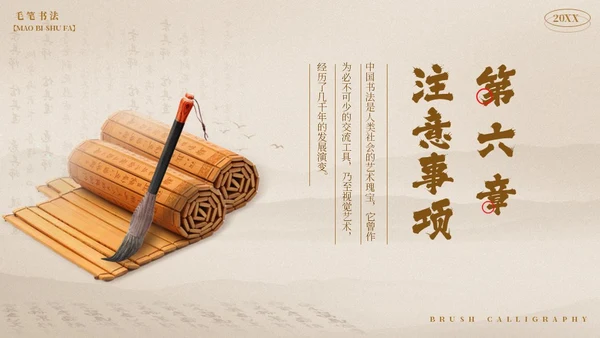 毛笔书法
【MAO BI SHU FA】
20XX
第六章
注意事项
中国书法是人类社会的艺术瑰宝，它曾作
为必不可少的交流工具，乃至视觉艺术，
经历了几千年的发展演变。
BRUSH CALLIGRAPHY